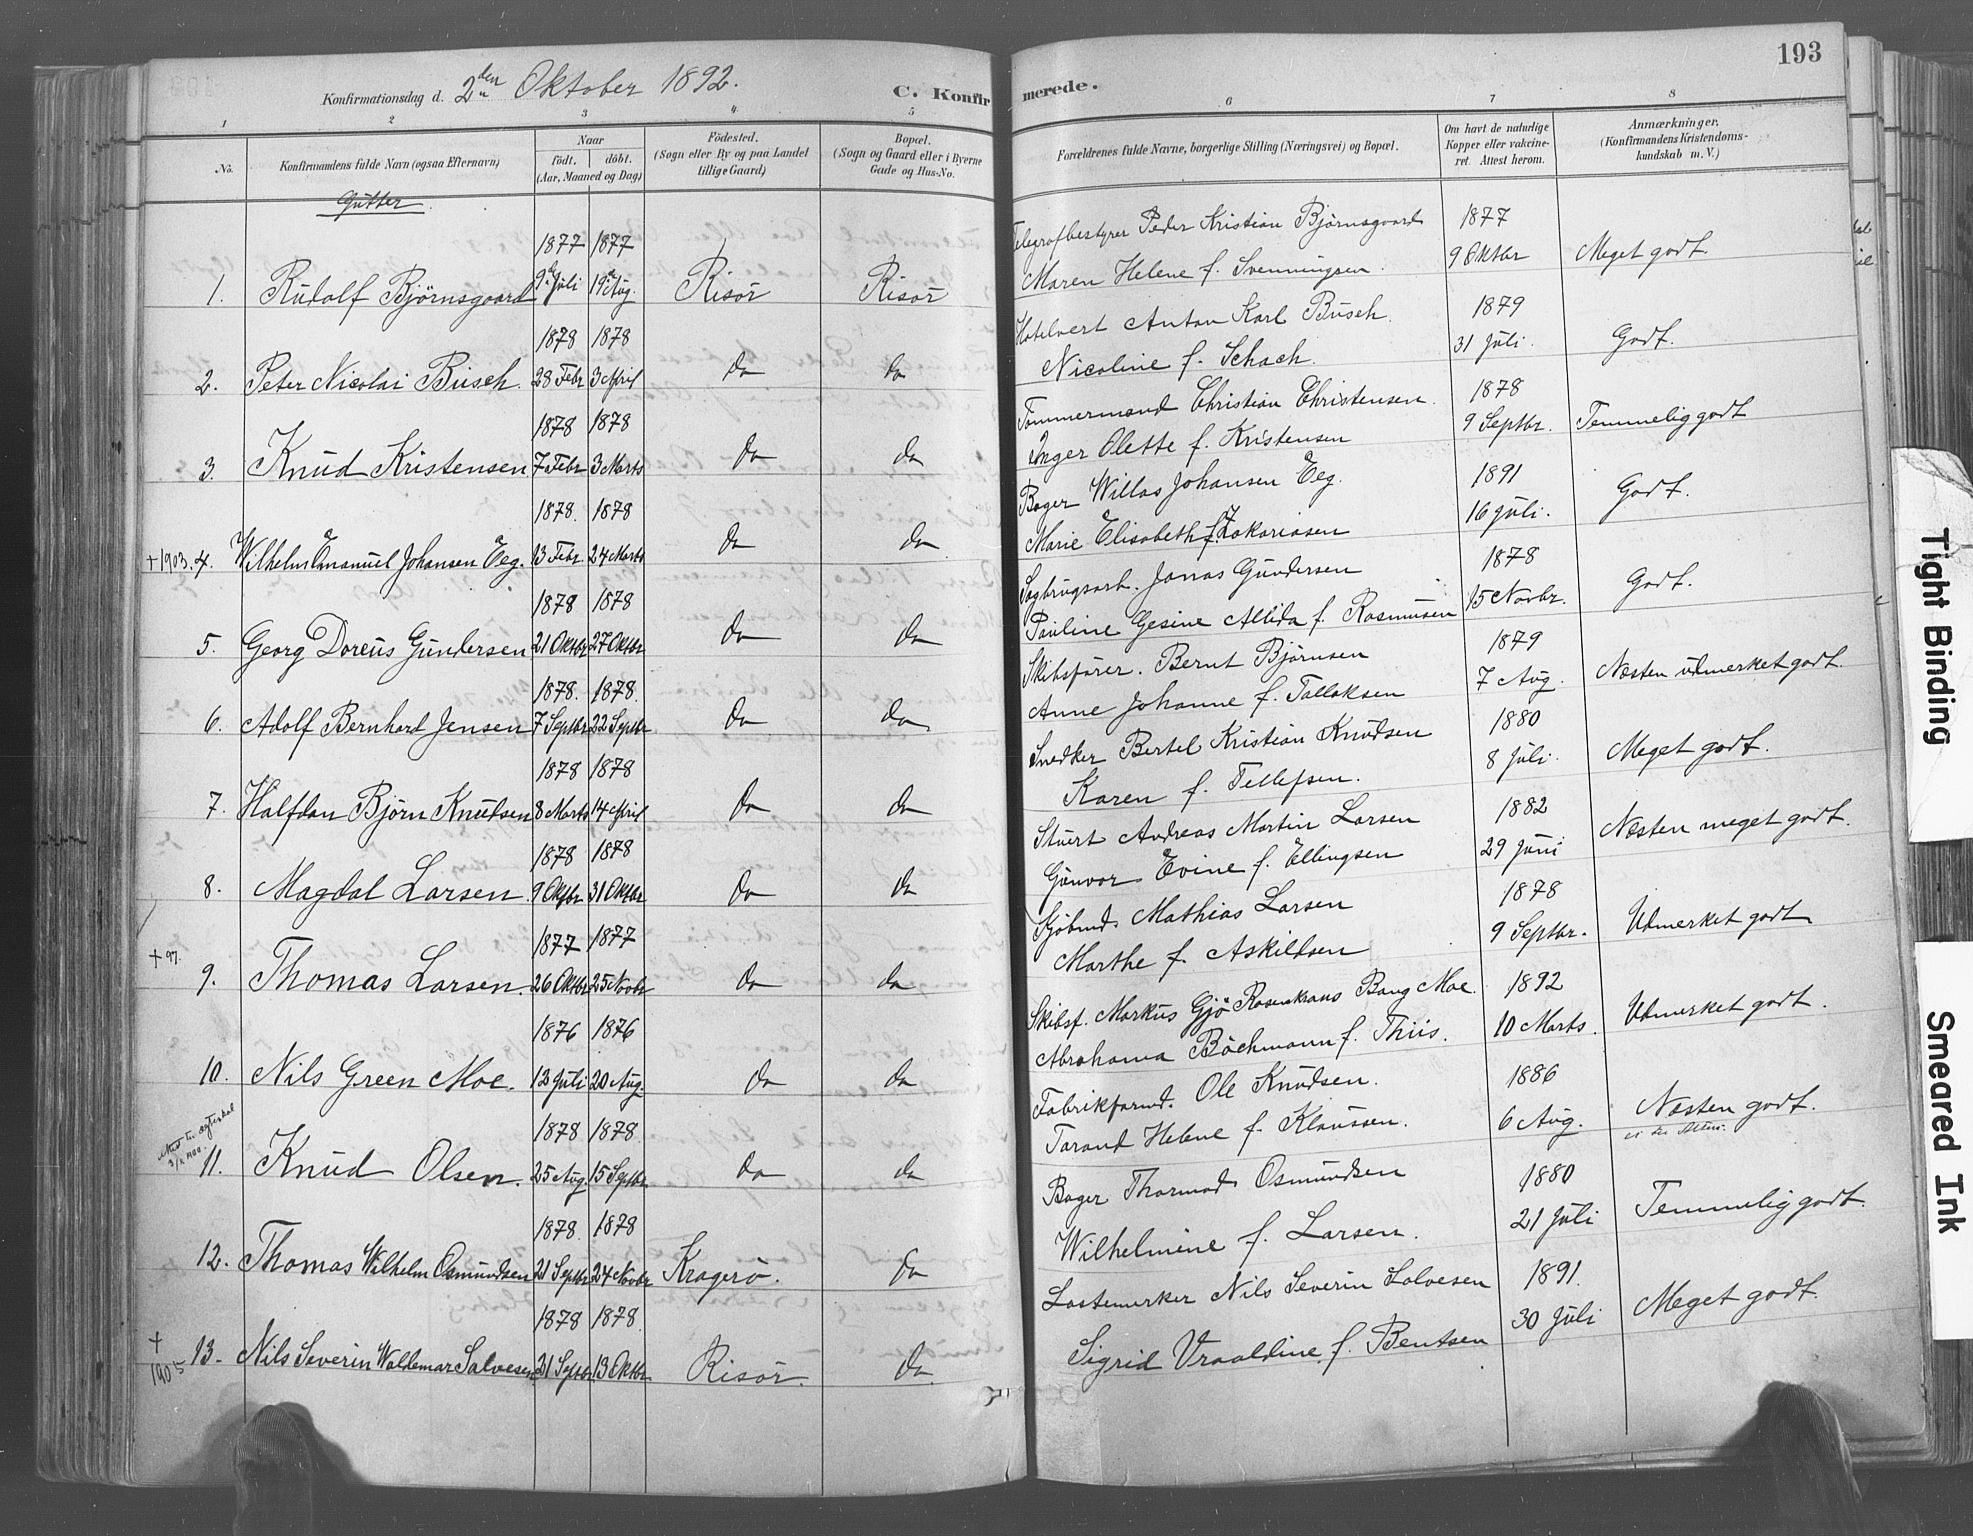 193
Konfirmationsdag d. 2den Oktober 1892.
C. Konfirmerede.
1 2 3 4 5 6 7 8
No.
Konfirmandens fulde Navn (ogsaa Efternavn)
Naar
födt. döbt.
(Aar, Maaned og Dag)
Födested.
(Sogn eller By og paa Landet
tillige Gaard)
Bopæl.
(Sogn og Gaard eller i Byerne
Gade og Hus-No.
Forældrenes fulde Navne, borgerlige Stilling (Næringsvei) og Bopæl.
Om havt de naturlige
Kopper eller vakcine-
ret. Attest herom.
Anmærkninger.
(Konfirmandens Kristendoms-
kundskab m. V.)
Gutter
1877 1877
1. Rudolf Björnsgaard 9de Juli 19de Aug. Risör Risör
Telegrafbestyrer Peder Kristian Björnsgaard 1877
Maren Helene f. Svenningsen. 9 Oktbr Meget godt.
1878 1878
2. Peter Nicolai Busch. 28 Febr 3 April do do
Hotelvert Anton Karl Busch. 1879
Nicoline f. Schach. 31 Juli. Godt.
1878 1878
3. Knud Kristensen. 7 Febr 3 Marts do do
Tömmermand Christian Christensen. 1878
Inger Olette f. Kristensen 9 Septbr. Temmelig godt
1878. 1878
+1903. 4. Wilhelm Emanuel Johansen Eeg. 13 Febr. 24 Marts do do
Bager Willas Johansen Eeg. 1891
Marie Elisabeth f. Zakariasen 16 Juli. Godt.
1878 1878
5. Georg Doreus Gundersen 21 Oktbr 27 Oktbr do do
Sagbrugsarb. Jonas Gundersen 1878
Pauline Gesine Allida f. Rasmusen 15 Novbr. Godt.
1878. 1878.
6. Adolf Bernhard Jensen 7 Septbr 22 Septbr do do
Skibsförer. Bernt Björnsen 1879
Anne Johanne f. Tallaksen 7 Aug. Næsten udmerket godt.
1878 1878
7. Halfdan Björn Knudsen 8 Marts 14 April do do
Snedker Bertel Kristian Knudsen 1880
Karen f. Tellefsen. 8 Juli. Meget godt.
1878 1878
8. Magdal Larsen. 9 Oktbr 31 Oktbr do do
Stuert Andreas Martin Larsen 1882
Gunvor Evine f. Ellingsen 29 Juni Næsten meget godt.
1877 1877
+ 97. 9. Thomas Larsen. 26 Oktbr 25 Novbr do do
Sjöbmd. Mathias Larsen 1878
Marthe f. Askildsen 9 Septbr. Udmerket godt
1876 1876
10. Nils Green Moe. 12 Juli 20 Aug. do do
Skibsf. Markus Gjö Rosenkrans Bang Moe. 1892
Abrahama Böchmann f. Thiis. 10 Marts. Udmerket godt.
1878 1878.
11. Knud Olsen. 25 Aug. 15 Septbr do do
Fabrikformd. Ole Knudsen. 1886
Tarand Helene f. Klaussen. 6 Aug. Næsten godt.
1878. 1878
12. Thomas Wilhelm Osmundsen 21 Septbr 24 Novbr Kragerö. do
Bager Thormod Osmundsen 1880
Wilhelmine f. Larsen. 21 Juli Temmelig godt.
1878 1878.
+ 1905 13. Nils Severin Waldemar Salvesen 21 Septbr. 13 Oktbr Risör. do.
Lastemerker Nils Severin Salvesen 1891.
Sigrid Vraaldine f. Bentsen 30 Juli Meget godt.
Tight Binding
Smeared Ink